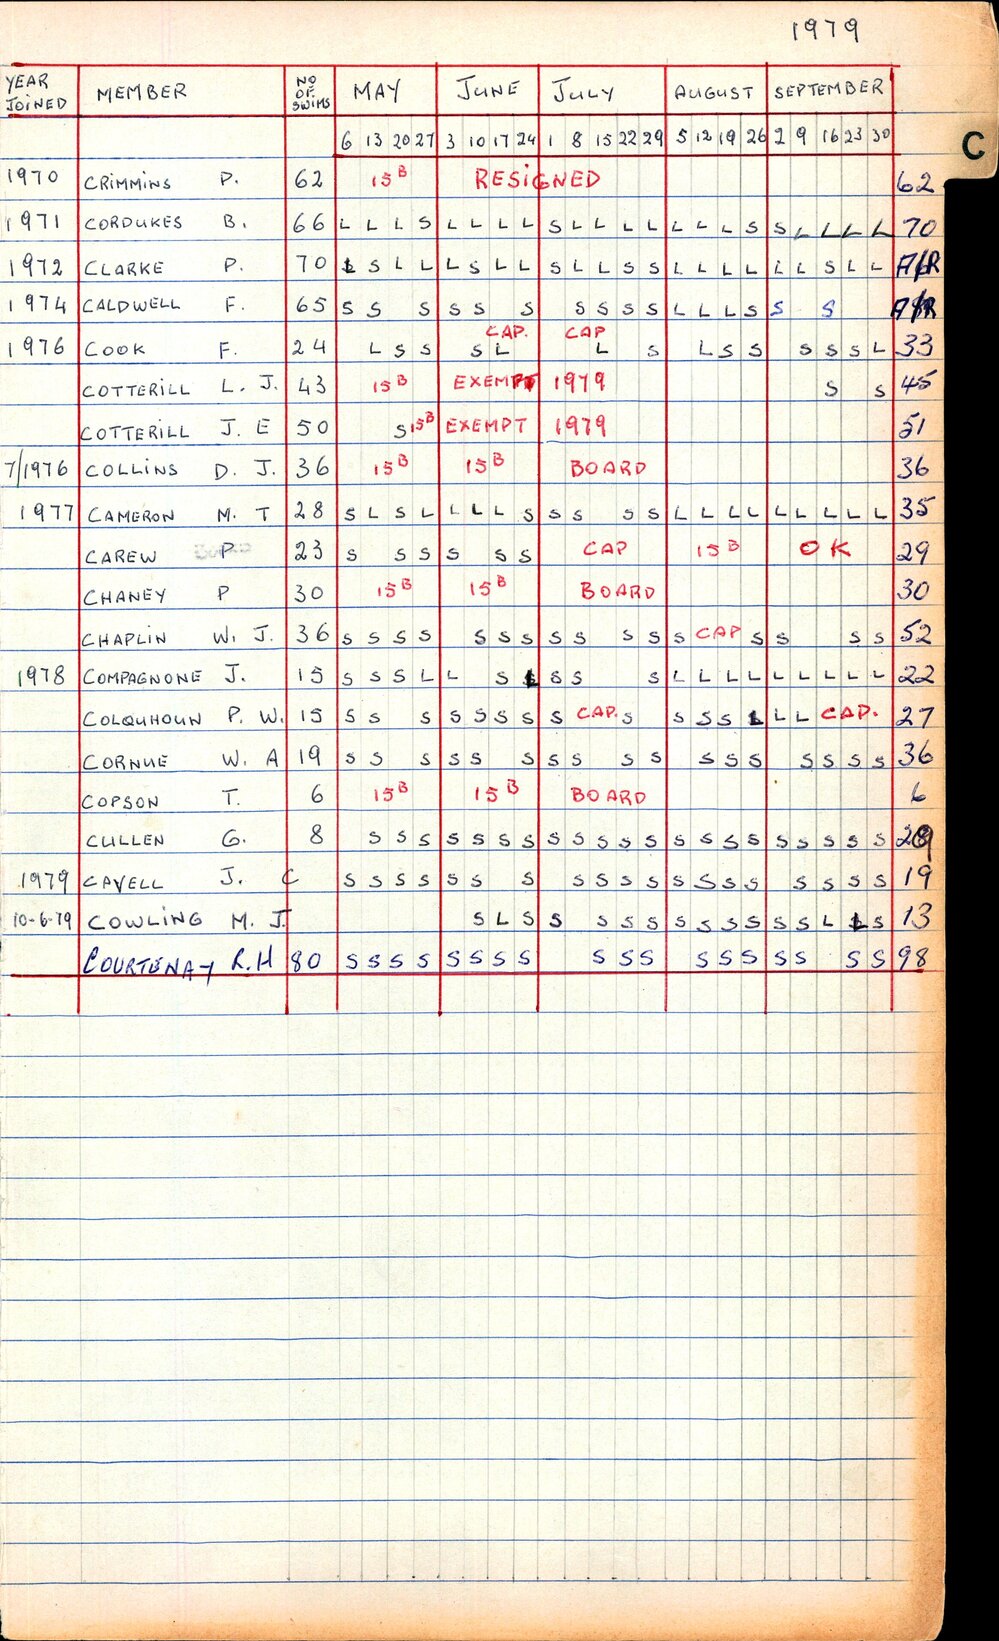 1979
YEAR JOINED MEMBER NO OF SWIMS MAY JUNE JULY AUGUST SEPTEMBER
6 13 20 27 3 10 17 24 1 8 15 22 29 5 12 19 26 2 9 16 23 30
C
1970 CRIMMINS P. 62 15B RESIGNED 62
1971 CORDUKES B. 66 L L L S L L L L S L L L L L L L S S L L L L 70
1972 CLARKE P. 70 L S L L L S L L S L L S S L L L L L L S L L A/R
1974 CALDWELL F. 65 S S S S S S S S S S L L L S S S A/R
CAP. CAP
1976 COOK F. 24 L S S S L L S L S S S S S L 33
COTTERILL L. J. 43 15B EXEMPT 1979 S S 45
COTTERILL J. E 50 S 15B EXEMPT 1979 51
7/1976 COLLINS D. J. 36 15B 15B BOARD 36
1977 CAMERON M. T 28 S L S L L L L S S S S S L L L L L L L L L 35
CAREW P 23 S S S S S S CAP 15B OK 29
CHANEY P 30 15B 15B BOARD 30
CHAPLIN W. J. 36 S S S S S S S S S S S S S CAP S S S S 52
1978 COMPAGNONE J. 15 S S S L L S L S S S L L L L L L L L L 22
COLQUHOUN P. W. 15 S S S S S S S S CAP. S S S S L L L CAP. 27
CORNUE W. A 19 S S S S S S S S S S S S S S S S S 36
COPSON T. 6 15B 15B BOARD 6
CULLEN G. 8 S S S S S S S S S S S S S S S S S S S S S 29
1979 CAVELL J. C S S S S S S S S S S S S S S S S S S S 19
10-6-79 COWLING M. J. S L S S S S S S S S S S S L L S 13
COURTENAY R.H 80 S S S S S S S S S S S S S S S S S S 98